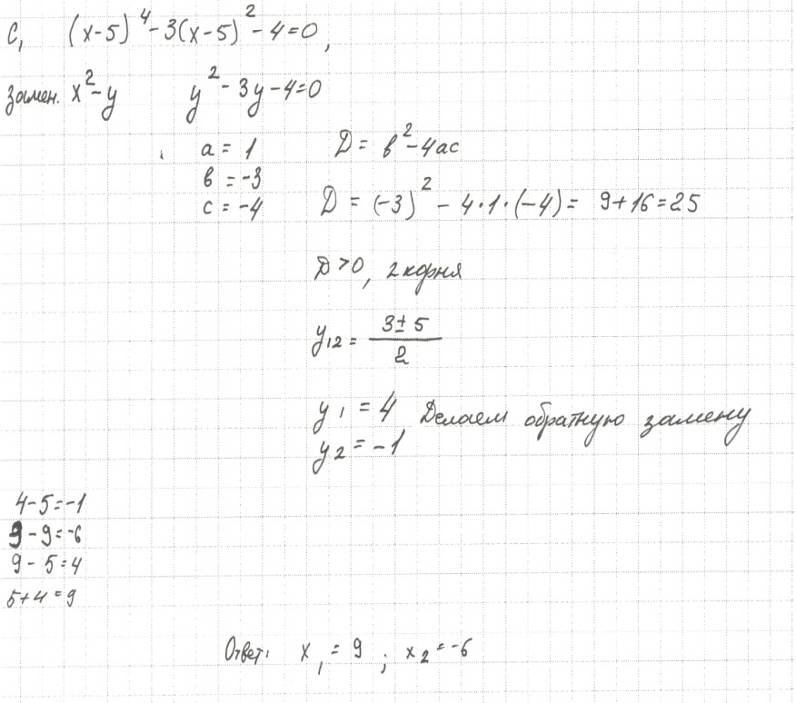 C₁ (x-5)⁴-3(x-5)²-4=0,
замен. x²-y y²-3y-4=0
a = 1 D = b²-4ac
b = -3
c = -4 D = (-3)² - 4·1·(-4) = 9+16=25
D>0, 2 корня
y₁₂ = (3±5)/2
y₁ = 4 Делаем обратную замену
y₂ = -1
4-5=-1
3-9=-6
9-5=4
5+4=9
Ответ: x₁ = 9 ; x₂ = -6